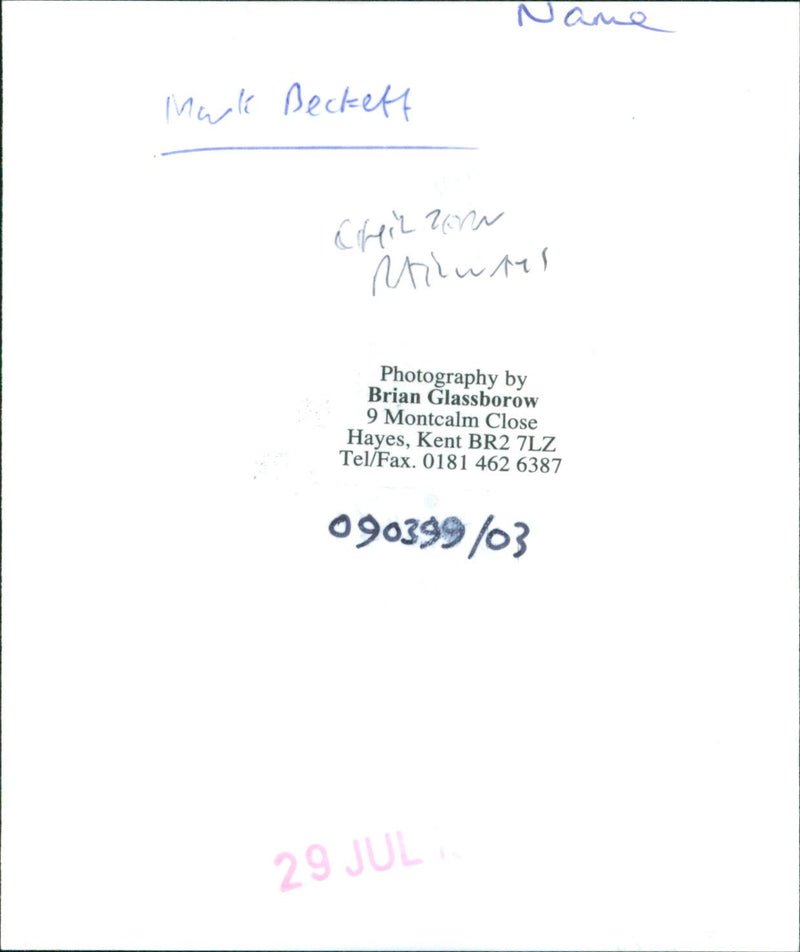 Name
Mark Beckett
Photography by
Brian Glassborow
9 Montcalm Close
Hayes, Kent BR2 7LZ
Tel/Fax. 0181 462 6387
090399/03
29 JUL